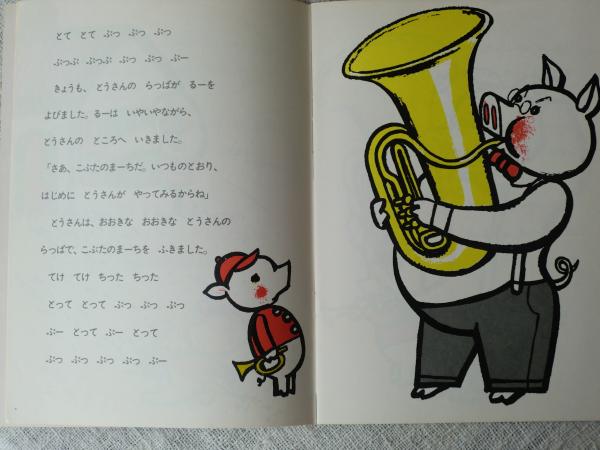 とて とて ぷっ ぷっ ぷっ
ぷっぷ ぷっぷ ぷっ ぷっ ぷー
きょうも、とうさんの らっぱが るーを
よびました。るーは いやいやながら、
とうさんの ところへ いきました。
「さあ、こぶたのまーちだ。いつものとおり、
はじめに とうさんが やってみるからね」
とうさんは、おおきな おおきな とうさんの
らっぱで、こぶたのまーちを ふきました。
てけ てけ ちった ちった
とって とって ぷっ ぷっ ぷっ
ぷー とって ぷー とって
ぷっ ぷっ ぷっ ぷっ ぷー